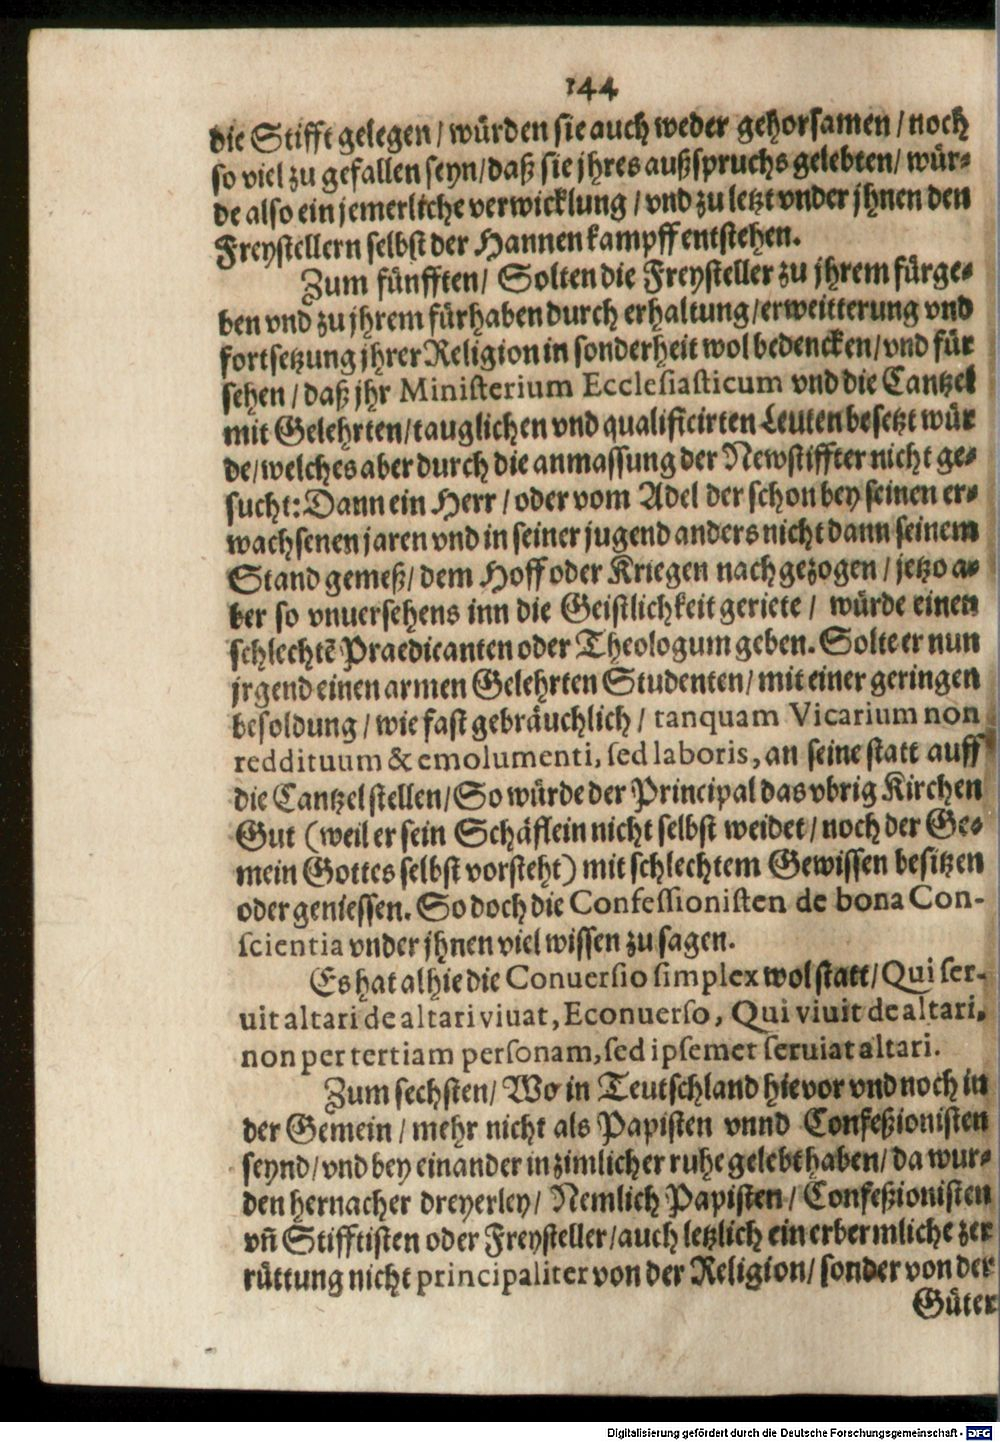 144
die Stifft gelegen / würden sie auch weder gehorsamen / noch
so viel zu gefallen seyn / daß sie jhres außspruchs gelebten / wür-
de also ein jemerliche verwicklung / vnd zu letzt vnder jhnen den
Freystellern selbst der Hannenkampff entstehen.
Zum fünfften / Solten die Freysteller zu jhrem fürge-
ben vnd zu jhrem fürhaben durch erhaltung / erweitterung vnd
fortsetzung jhrer Religion in sonderheit wol bedencken / vnd für
sehen / daß jhr Ministerium Ecclesiasticum vnd die Cantzel
mit Gelehrten / tauglichen vnd qualificirten Leuten besetzt wür
de / welches aber durch die anmassung der Newstiffter nicht ge-
sucht: Dann ein Herr / oder vom Adel der schon bey seinen er-
wachsenen jaren vnd in seiner jugend anders nicht dann seinem
Stand gemeß / dem Hoff oder Kriegen nachgezogen / jetzo a-
ber so vnuersehens inn die Geistlichkeit geriete / würde einen
schlechtē Praedicanten oder Theologum geben. Solte er nun
jrgend einen armen Gelehrten Studenten / mit einer geringen
besoldung / wie fast gebräuchlich / tanquam Vicarium non
reddituum & emolumenti, sed laboris, an seine statt auff
die Cantzel stellen / So würde der Principal das vbrig Kirchen
Gut (weil er sein Schäflein nicht selbst weidet / noch der Ge-
mein Gottes selbst vorsteht) mit schlechtem Gewissen besitzen
oder geniessen. So doch die Confessionisten de bona Con-
scientia vnder jhnen viel wissen zu sagen.
Es hat alhie die Conuersio simplex wol statt / Qui ser-
uit altari de altari viuat, Econuerso, Qui viuit de altari,
non per tertiam personam, sed ipsemet seruiat altari.
Zum sechsten / Wo in Teutschland hievor vnd noch in
der Gemein / mehr nicht als Papisten vnnd Confeßionisten
seynd / vnd bey einander in zimlicher ruhe gelebt haben / da wur-
den hernacher dreyerley / Nemlich Papisten / Confeßionisten
vñ Stifftisten oder Freysteller / auch letzlich ein erbermliche zer
rüttung nicht principaliter von der Religion / sonder von der
Güter
Digitalisierung gefördert durch die Deutsche Forschungsgemeinschaft - DFG